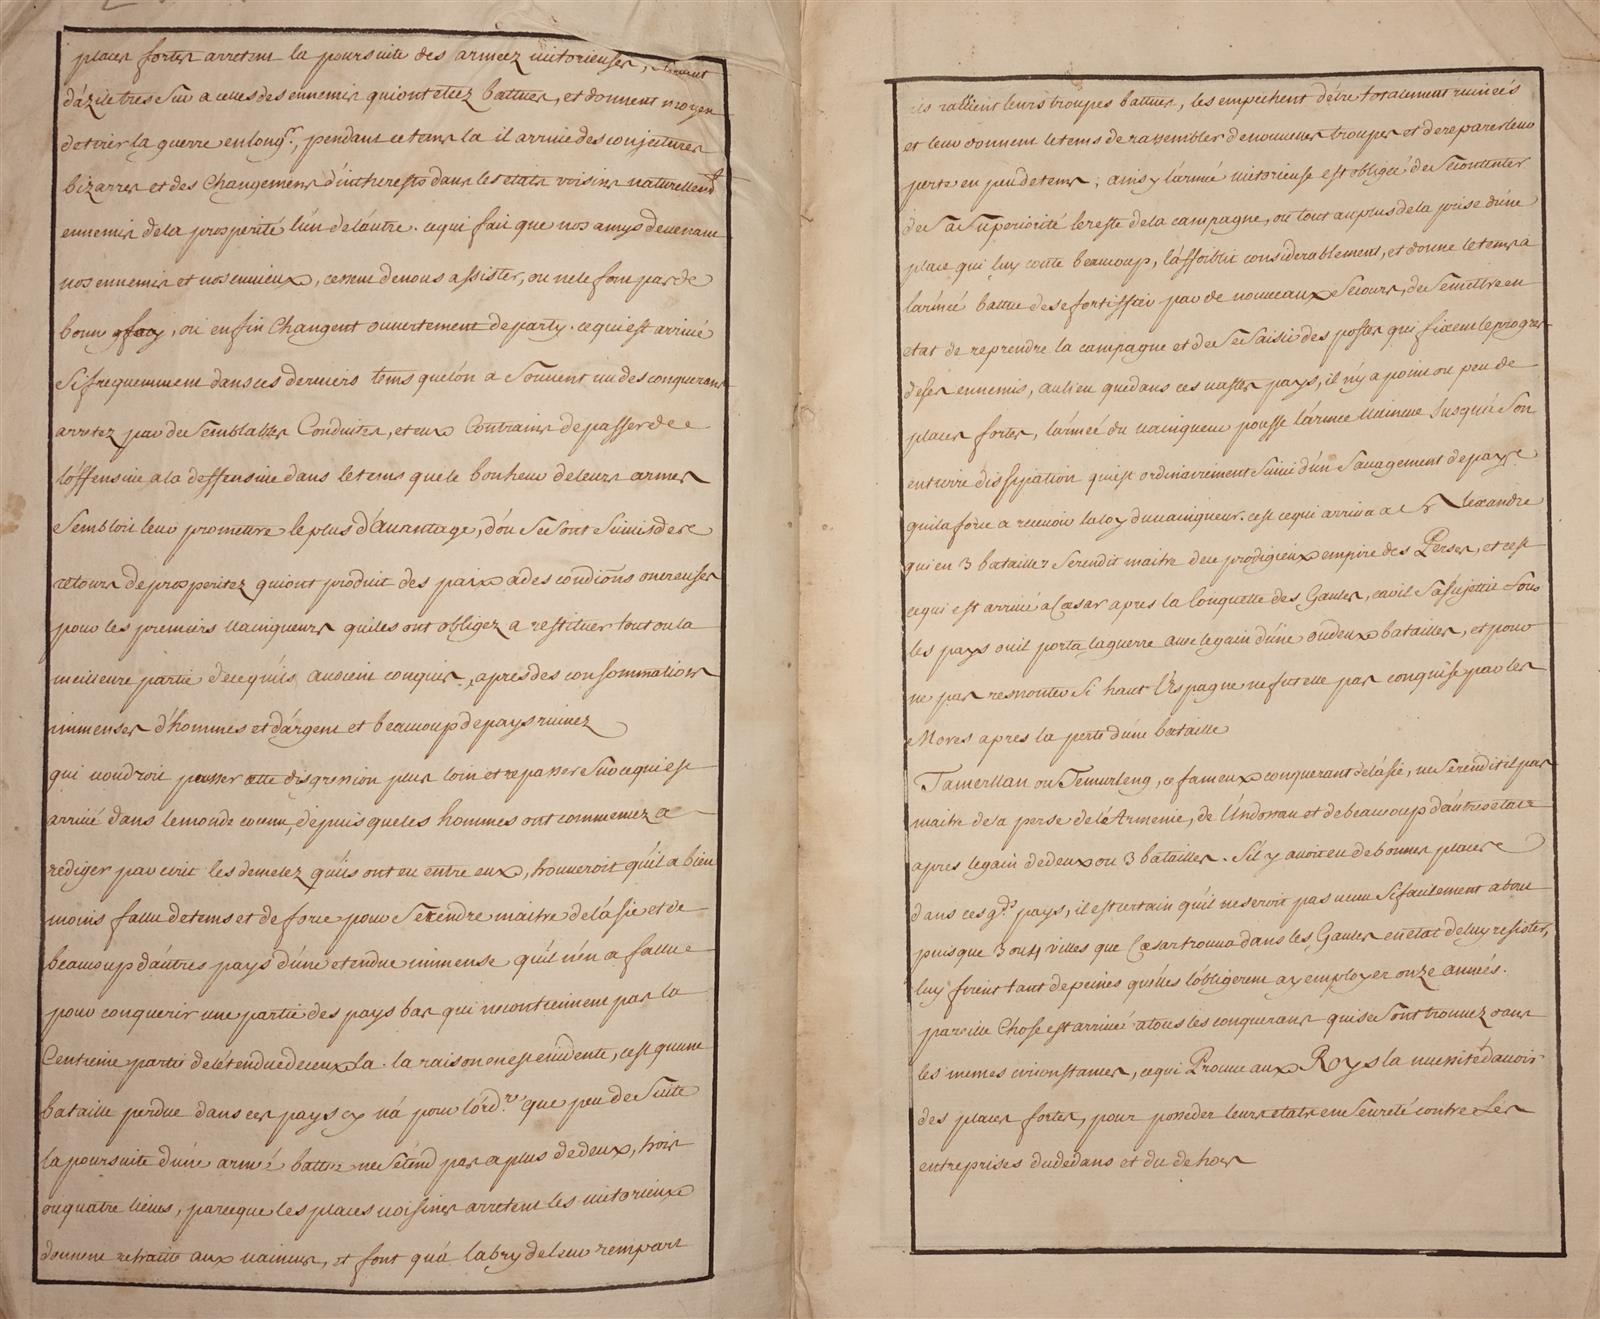 places fortes arretent la poursuite des armeez victorieuses, servent
d'azile tres seur a celles des ennemis qui ont etez battues, et donnent moyen
de tirer la guerre en longr., pendant ce tems la il arrive des conjectures
bizarres et des changemens d'inthérests dans les etats voisins naturellemt
ennemis de la prosperité l'un de l'autre. ce qui fait que nos amys devenant
nos ennemis et nos envieux, cessent de nous assister, ou ne le font pas de
bonne foy, ou enfin changent ouvertement de party. ce qui est arrivé
si frequemment dans ces derniers tems que l'on a souvent vu des conquerans
arretez par de semblables conduites, et eux contrains de passer de
l'offensive a la deffensive dans le tems que le bonheur de leurs armes
sembloit leur promettre le plus d'avantage, d'ou se sont suivis de ce
retours de prosperitez qui ont produit des paix a des condiōns onereuses
pour les premiers vainqueurs qui les ont obligez a restituer tout ou la
meilleure partie de ce qu'ils avoient conquis, apres des consommations
immenses d'hommes et d'argent et beaucoup de pays ruinez
qui voudroit passer cette disgression plus loin et repasser sur ce qui est
arrivé dans le monde connu, depuis que les hommes ont commencez a
rediger par ecrit les demelez qu'ils ont eu entre eux, trouveroit qu'il a bien
moins fallu de tems et de force pour se rendre maitre de l'asie et de
beaucoup d'autres pays d'une etendue immense qu'il n'en a fallu
pour conquerir une partie des pays bas qui ne contiennent pas la
centieme partie de l'etendue de ceux la. la raison en est evidente, c'est qu'une
bataille perdue dans ces pays cy n'a pour l'ordre que peu de suite
la poursuite d'une armeé battue ne s'étend pas a plus de deux, trois
ou quatre lieues, parceque les places voisines arretent les victorieux
donnent retraitte aux vaincus, et font qu'a l'abry de leur rempart
ils rallient leurs troupes battues, les empechent d'etre totalement ruinées
et leur donnent le tems de rassembler de nouvelles troupes et de reparer leur
perte en peu de tems, ainsy l'armeé victorieuse est obligée de se contenter
de sa superiorité le reste de la campagne, ou tout au plus de la prise d'une
place qui luy coute beaucoup, l'affoiblit considerablement, et donne le tems a
l'armeé battue de se fortiffier par de nouveaux secours, de se mettre en
etat de reprendre la campagne et de se saisir des postes qui fixent le progres
de ses ennemis, au lieu que dans ces vastes pays, il n'y a point ou peu de
places fortes, l'armeé du vainqueur pousse l'armeé vaincue jusqu'a son
entiere dissipation qui est ordinairement suivi d'un savagement de pays
qui la force a recevoir la loy du vainqueur. c'est ce qui arriva a Alexandre
qui en 3 batailles se rendit maitre de ce prodigieux empire des Perses, et c'est
ce qui est arrivé a Cæsar apres la conquette des Gaules, car il s'assujettit tous
les pays ou il porta la guerre avec le gain d'une ou deux batailles, et pour
ne pas remonter si haut l'Espagne ne fut elle pas conquise par les
Mores apres la perte d'une bataille
Tamerllan ou Temurleng, ce fameux conquerant de l'asie, ne se rendit il pas
maitre de la perse de l'Armenie, de l'Indostan et de beaucoup d'autres etats
apres le gain de deux ou 3 batailles. s'il y avoit eu de bonnes places
dans ces gds. pays, il est certain qu'il ne seroit pas venu si facilement a bout
puisque 3 ou 4 villes que Cæsar trouva dans les Gaules en etat de luy resister,
luy firent tant de peines qu'elles l'obligerent a y employer onze années.
pareille chose est arrivé a tous les conquerans qui se sont trouvez dans
les memes circonstances, ce qui Prouve aux Roys la necessité d'avoir
des places fortes, pour posseder leurs etats en seureté contre les
entreprises du dedans et du dehors